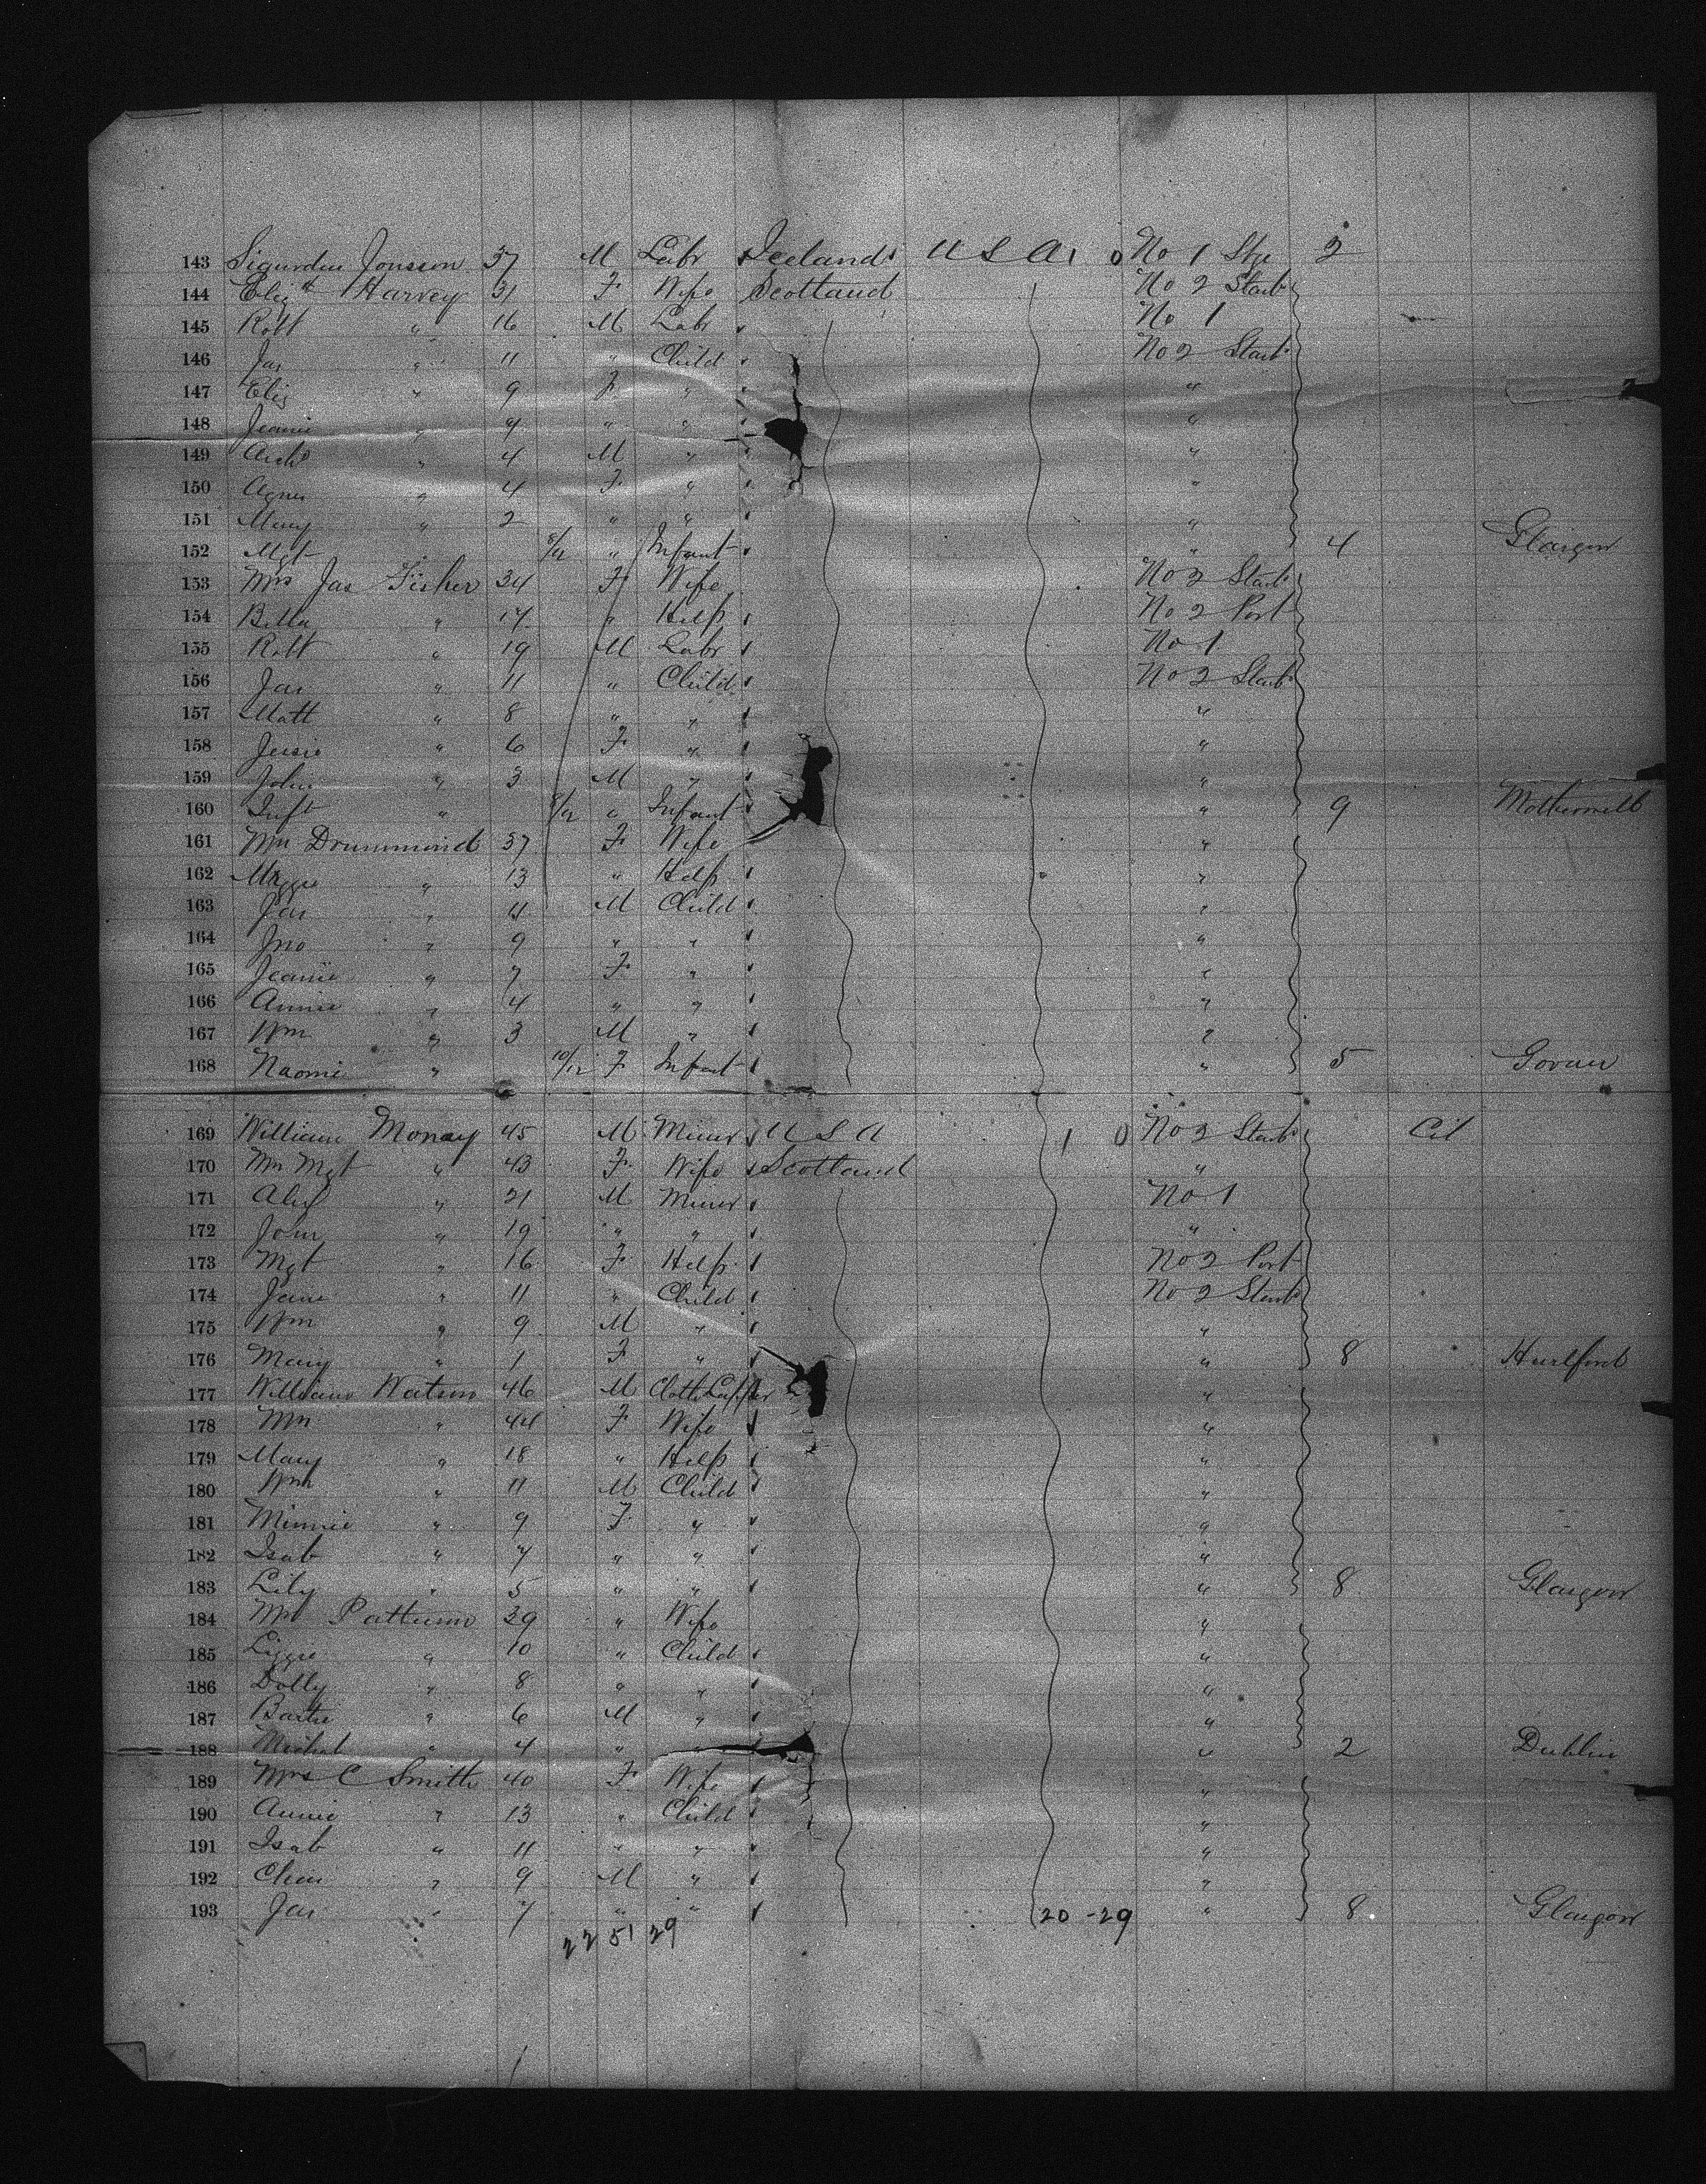 143 Sigurdur Jonsson 37 M Labr Iceland U S A 1 0 No 1 Stge 2
144 Eliz th Harvey 31 F Wife Scotland No 2 Starb
145 Robt " 16 M Labr No 1
146 Jas " 11 " Child No 2 Starb
147 Eliz " 9 F " "
148 Jeanie " 7 " " "
149 Archd " 4 M " "
150 Agnes " 4 F " "
151 Mary " 2 " " "
152 Mgt " 8/12 " Infant " 4 Glasgow
153 Mrs Jas Fisher 34 F Wife No 2 Starb
154 Bella " 17 " Help No 2 Port
155 Robt " 19 M Labr No 1
156 Jas " 11 " Child No 2 Starb
157 Matt " 8 " " "
158 Jessie " 6 F " "
159 John " 3 M " "
160 Inft " 8/12 " Infant " 9 Motherwell
161 Mrs Drummond 37 F Wife "
162 Maggie " 13 " Help "
163 Jas " 11 M Child "
164 Jno " 9 " " "
165 Jeanie " 7 F " "
166 Annie " 4 " " "
167 Wm " 3 M " "
168 Naomi " 10/12 F Infant " 5 Govan
169 William Monay 45 M Miner U S A 1 0 No 2 Starb Cit
170 Mrs Mgt " 43 F Wife Scotland "
171 Alex " 21 M Miner No 1
172 John " 19 " " "
173 Mgt " 16 F Help No 2 Port
174 Jane " 11 " Child No 2 Starb
175 Wm " 9 M " "
176 Mary " 1 F " " 8 Hurlford
177 William Watson 46 M Cloth Lapper "
178 Mrs " 44 F Wife "
179 Mary " 18 " Help "
180 Wm " 11 M Child "
181 Minnie " 9 F " "
182 Isab " 7 " " "
183 Lily " 5 " " " 8 Glasgow
184 Mrs Patterson 39 " Wife "
185 Lizzie " 10 " Child "
186 Dolly " 8 " " "
187 Bartie " 6 M " "
188 Michal " 4 " " " 2 Dublin
189 Mrs C Smith 40 F Wife "
190 Annie " 13 " Child "
191 Isab " 11 " " "
192 " 9 M " "
193 Jas " 7 " " 20 - 29 " 8 Glasgow
22 51 29